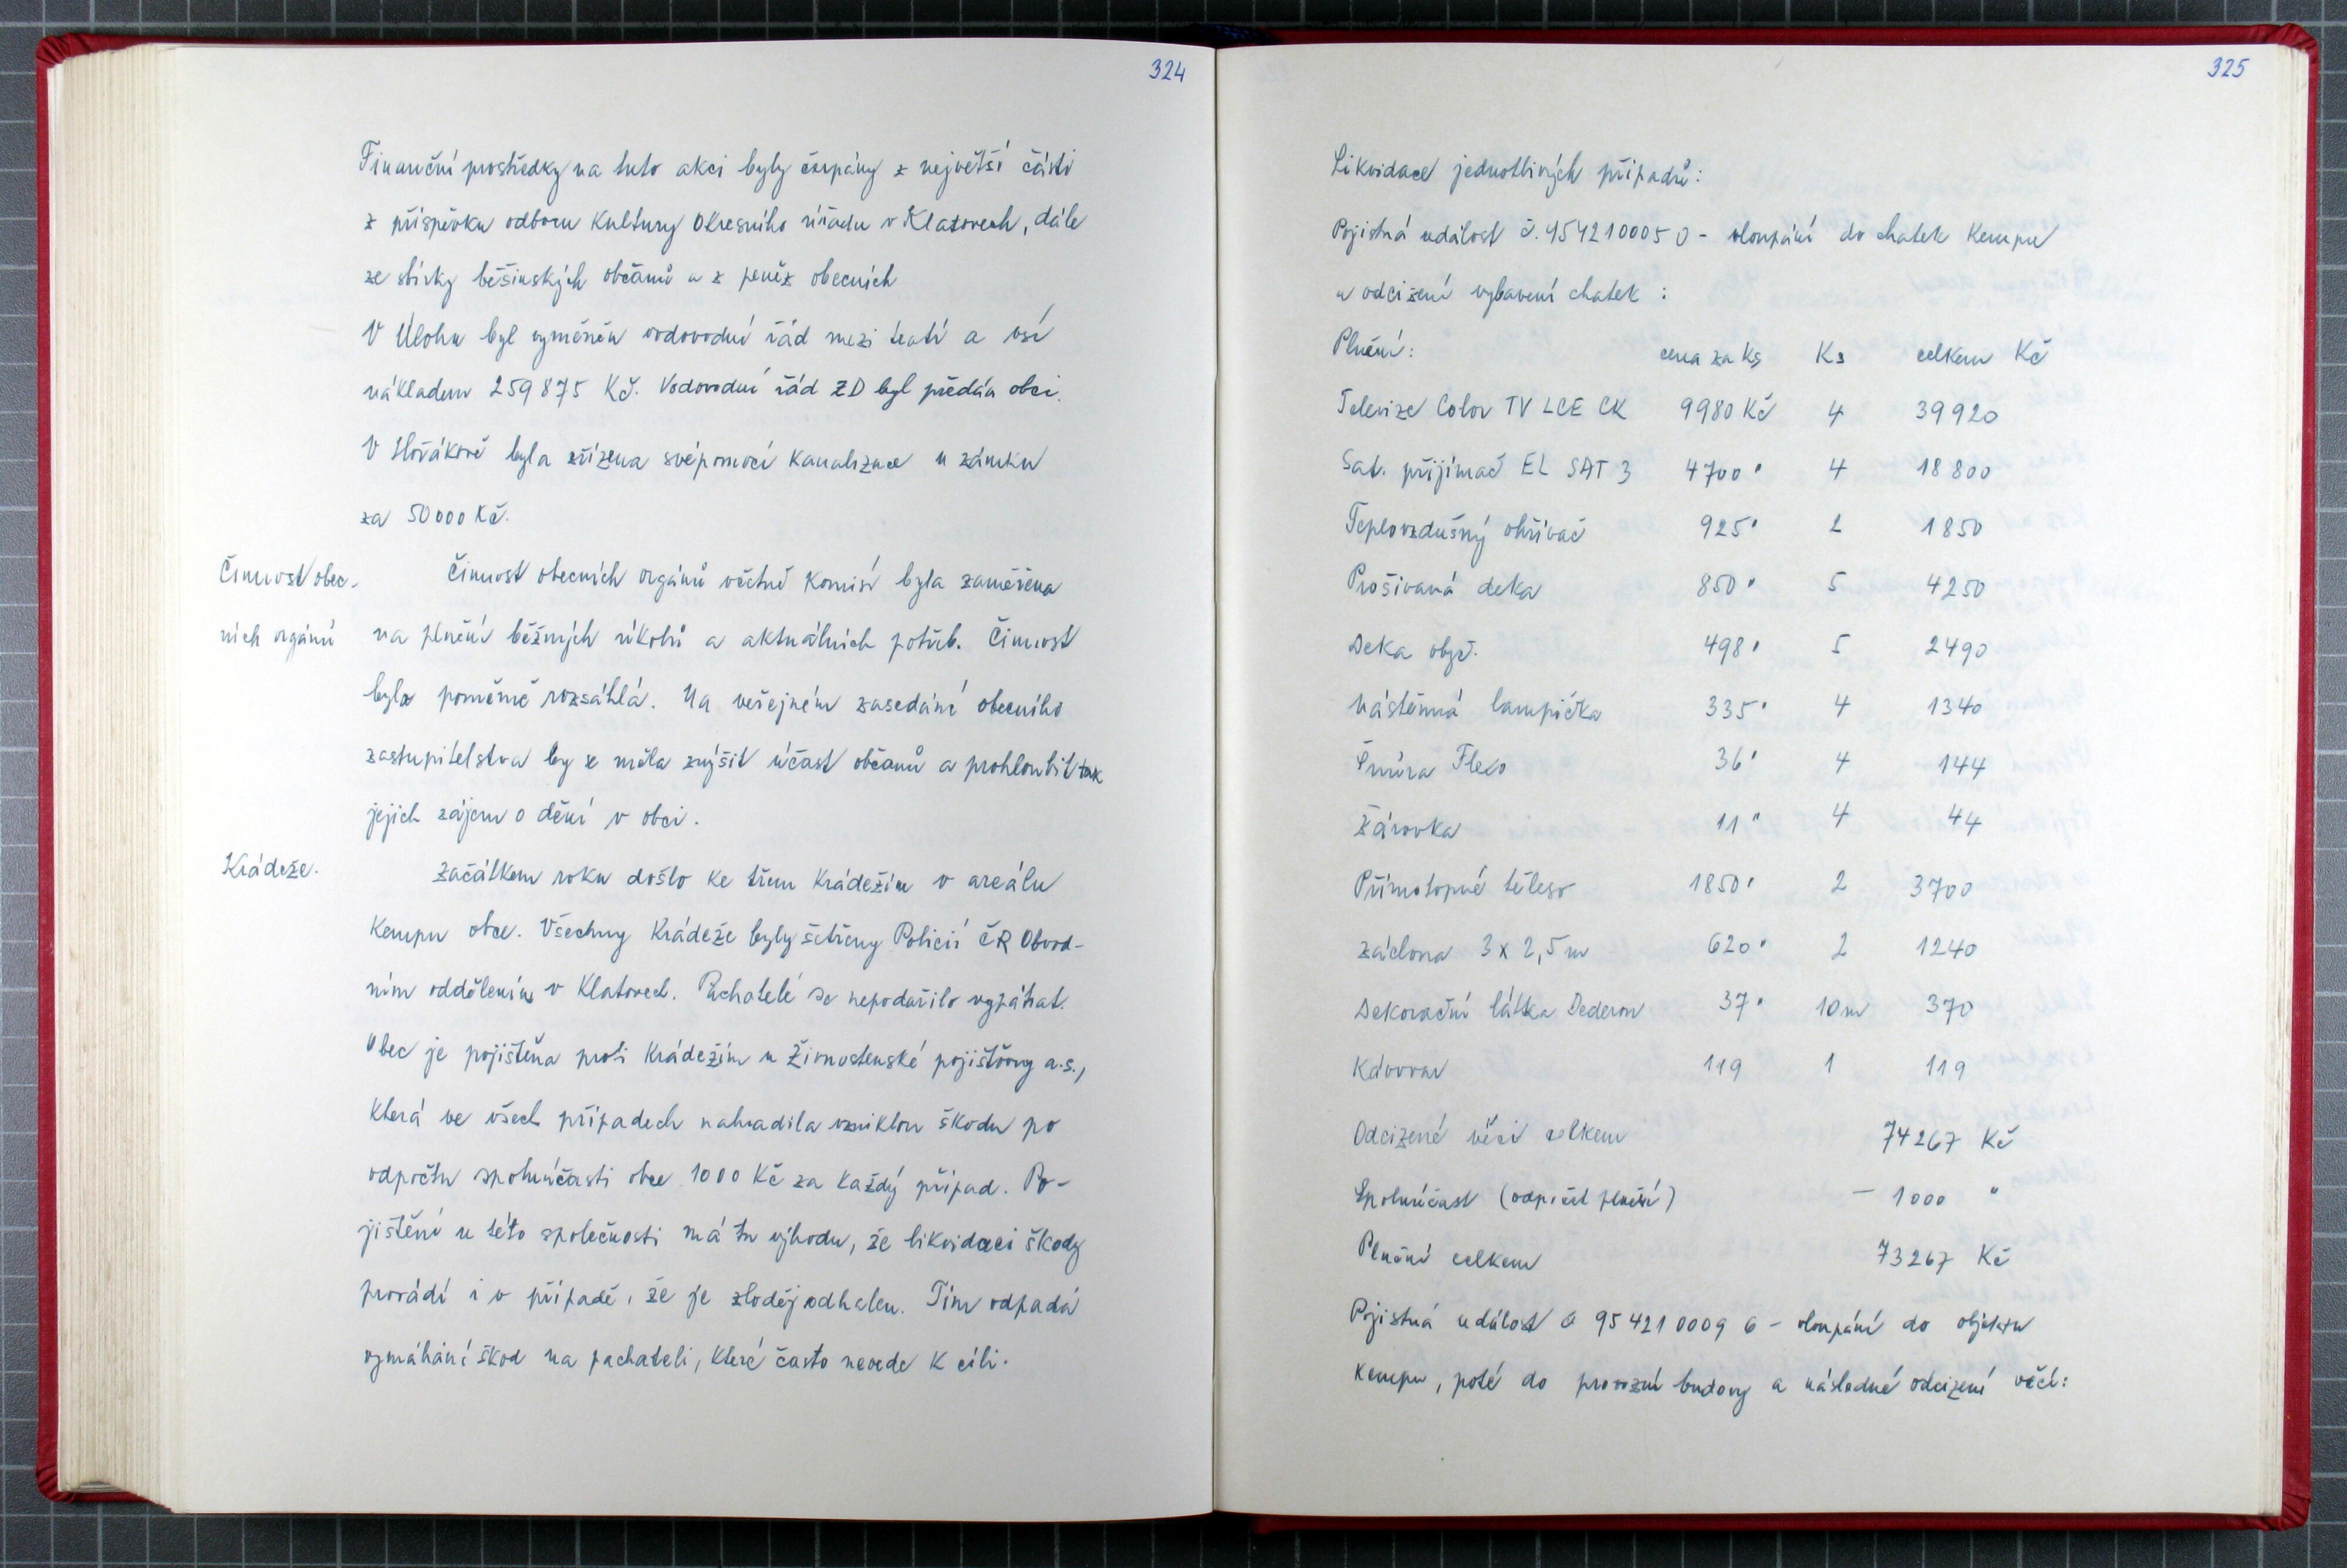 324
Finanční prostředky na tuto akci byly čerpány z největší části
z příspěvku odboru kultury Okresního úřadu v Klatovech, dále
ze sbírky běšinských občanů a z peněz obecních
V Úlohu byl vyměněn vodovodní řád mezi tratí a vsí
nákladem 259875 Kč. Vodovodní řád ZD byl předán obci.
V Hořákově byla zřízena svépomocí kanalizace u zámku
za 50000 Kč.
Činnost obec-
ních orgánů
Činnost obecních orgánů včetně komisí byla zaměřena
na plnění běžných úkolů a aktuálních potřeb. Činnost
byla poměrně rozsáhlá. Na veřejném zasedání obecního
zastupitelstva by se měla zvýšit účast občanů a prohloubit tak
jejich zájem o dění v obci.
Krádeže.
Začátkem roku došlo ke třem krádežím v areálu
kempu obce. Všechny krádeže byly šetřeny Policií ČR Obvod-
ním oddělením v Klatovech. Pachatelé se nepodařilo vypátrat.
Obec je pojištěna proti krádežím u Živnostenské pojišťovny a.s.,
která ve všech případech nahradila vzniklou škodu po
odpočtu spoluúčasti obce 1000 Kč za každý případ. Po-
jištění u této společnosti má tu výhodu, že likvidaci škody
provádí i v případě, že je zloděj odhalen. Tím odpadá
vymáhání škod na pachateli, které často nevede k cíli.
325
Likvidace jednotlivých případů:
Pojistná událost č. 954210005 0 - vloupání do chatek kempu
a odcizení vybavení chatek :
Plnění: cena za Ks Ks celkem Kč
Televize Color TV LCE CK 9980 Kč 4 39920
Sat. přijímač EL SAT 3 4700 " 4 18800
Teplovzdušný ohřívač 925 " 2 1850
Prošívaná deka 850 " 5 4250
Deka obyč. 498 " 5 2490
Nástěnná lampička 335 " 4 1340
Šnůra Flexo 36 " 4 144
Žárovka 11 " 4 44
Přímotopné těleso 1850 " 2 3700
Záclona 3 x 2,5 m 620 " 2 1240
Dekorační látka Dederon 37 " 10 m 370
Kávovar 119 1 119
Odcizené věci celkem 74267 Kč
Spoluúčast (odpočet plnění) - 1000 "
Plnění celkem 73267 Kč
Pojistná událost č 954210009 6 - vloupání do objektu
kempu, poté do provozní budovy a následné odcizení věcí: